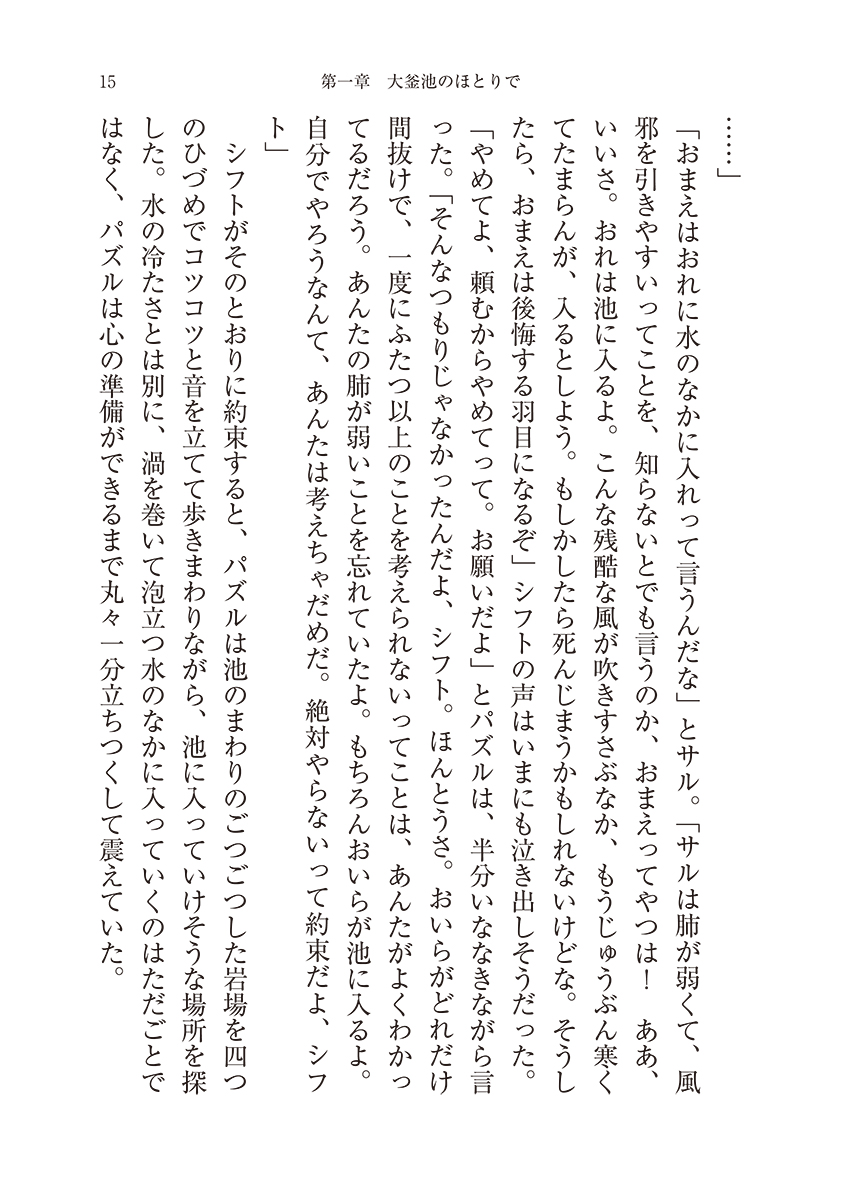 15
第一章　大釜池のほとりで
……」
「おまえはおれに水のなかに入れって言うんだな」とサル。「サルは肺が弱くて、風
邪を引きやすいってことを、知らないとでも言うのか、おまえってやつは！　ああ、
いいさ。おれは池に入るよ。こんな残酷な風が吹きすさぶなか、もうじゅうぶん寒く
てたまらんが、入るとしよう。もしかしたら死んじまうかもしれないけどな。そうし
たら、おまえは後悔する羽目になるぞ」シフトの声はいまにも泣き出しそうだった。
「やめてよ、頼むからやめてって。お願いだよ」とパズルは、半分いななきながら言
った。「そんなつもりじゃなかったんだよ、シフト。ほんとうさ。おいらがどれだけ
間抜けで、一度にふたつ以上のことを考えられないってことは、あんたがよくわかっ
てるだろう。あんたの肺が弱いことを忘れていたよ。もちろんおいらが池に入るよ。
自分でやろうなんて、あんたは考えちゃだめだ。絶対やらないって約束だよ、シフ
ト」
　シフトがそのとおりに約束すると、パズルは池のまわりのごつごつした岩場を四つ
のひづめでコツコツと音を立てて歩きまわりながら、池に入っていけそうな場所を探
した。水の冷たさとは別に、渦を巻いて泡立つ水のなかに入っていくのはただごとで
はなく、パズルは心の準備ができるまで丸々一分立ちつくして震えていた。